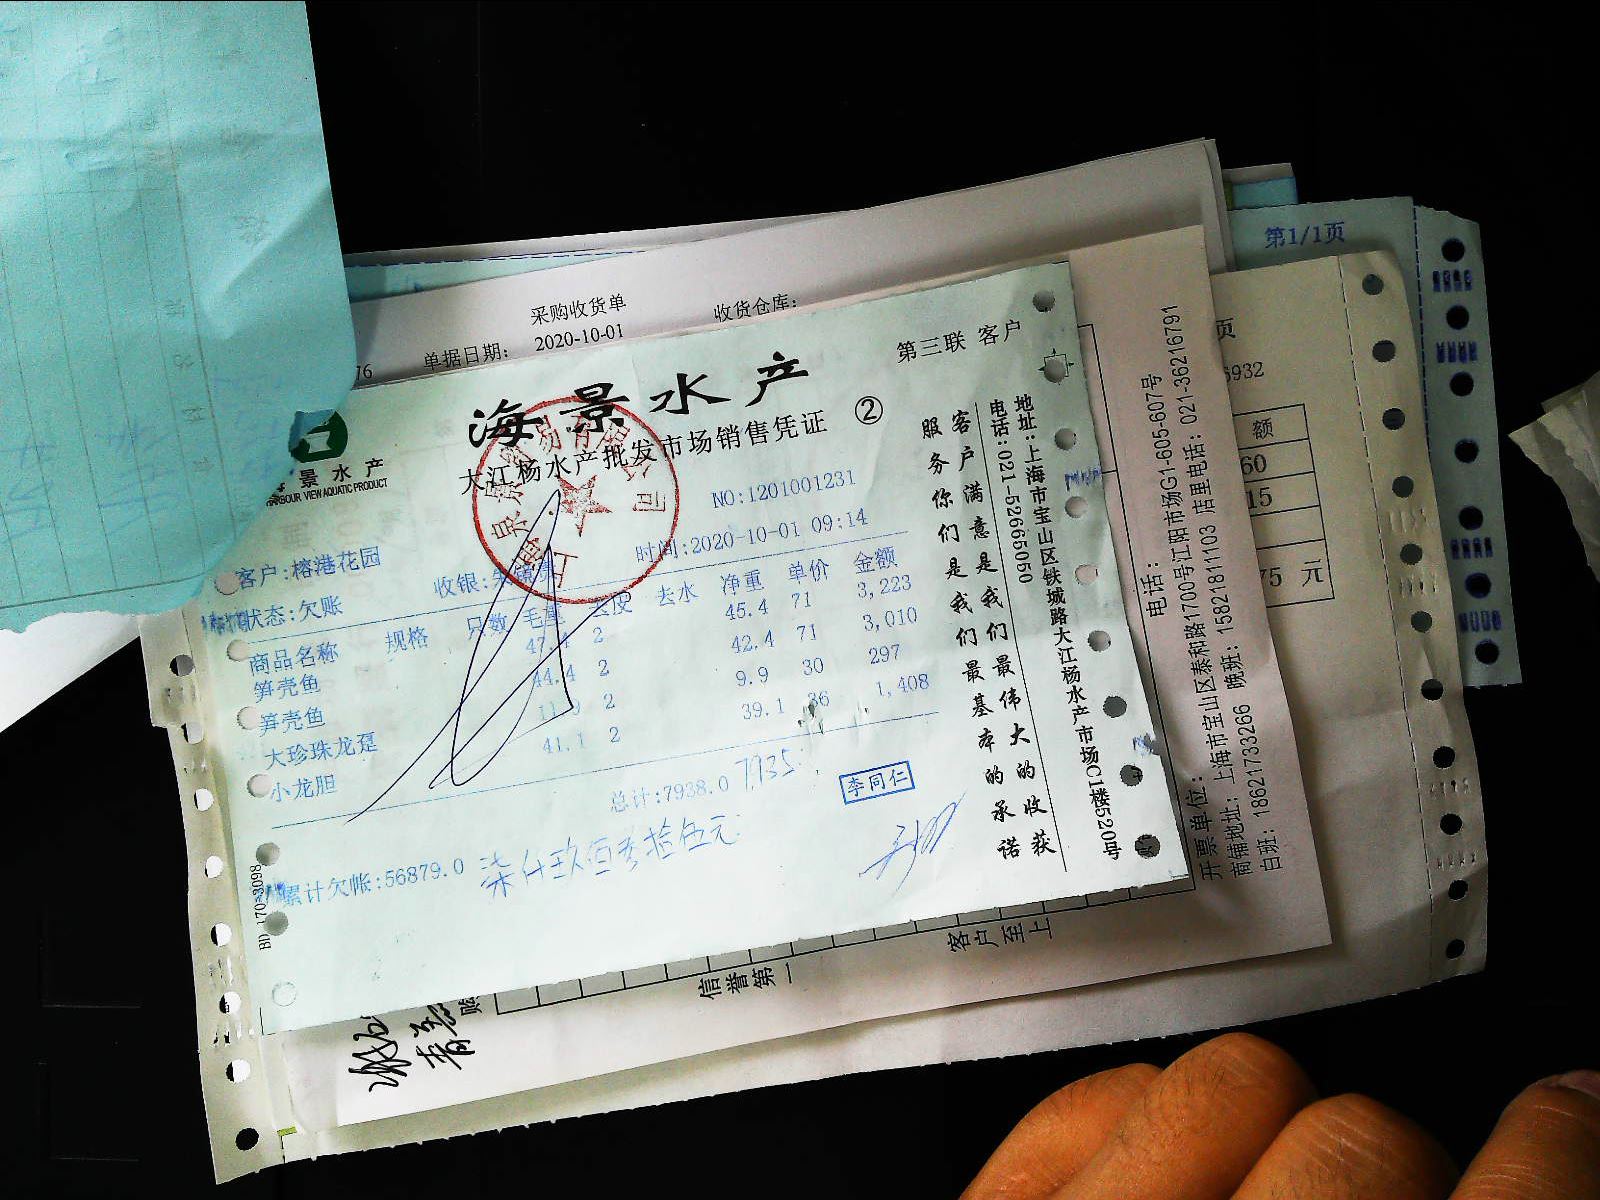 第1/1页
采购收货单
收货仓库：
单据日期： 2020-10-01
第三联 客户
海景水产
大江杨水产批发市场销售凭证 ②
景水产
HARBOUR VIEW AQUATIC PRODUCT
NO:1201001231
客户:榕港花园
时间:2020-10-01 09:14
状态:欠账
收银:
商品名称 规格 只数 毛重 去皮 去水 净重 单价 金额
笋壳鱼 47.4 2 45.4 71 3,223
笋壳鱼 44.4 2 42.4 71 3,010
大珍珠龙趸 11.9 2 9.9 30 297
小龙胆 41.1 2 39.1 36 1,408
总计:7938.0 7935
李同仁
累计欠帐:56879.0 柒仟玖佰叁拾伍元
BD 170-3098
客户满意是我们最伟大的收获
服务你们是我们最基本的承诺
地址:上海市宝山区铁城路大江杨水产市场C1楼520号
电话:021-52665050
电话：
开票单位：
商铺地址：上海市宝山区泰和路1700号江阳市场G1-605-607号
白班：18621733266 晚班：15821811103 店里电话：021-36216791
信誉第一
客户至上
页
6932
额
60
15
75 元